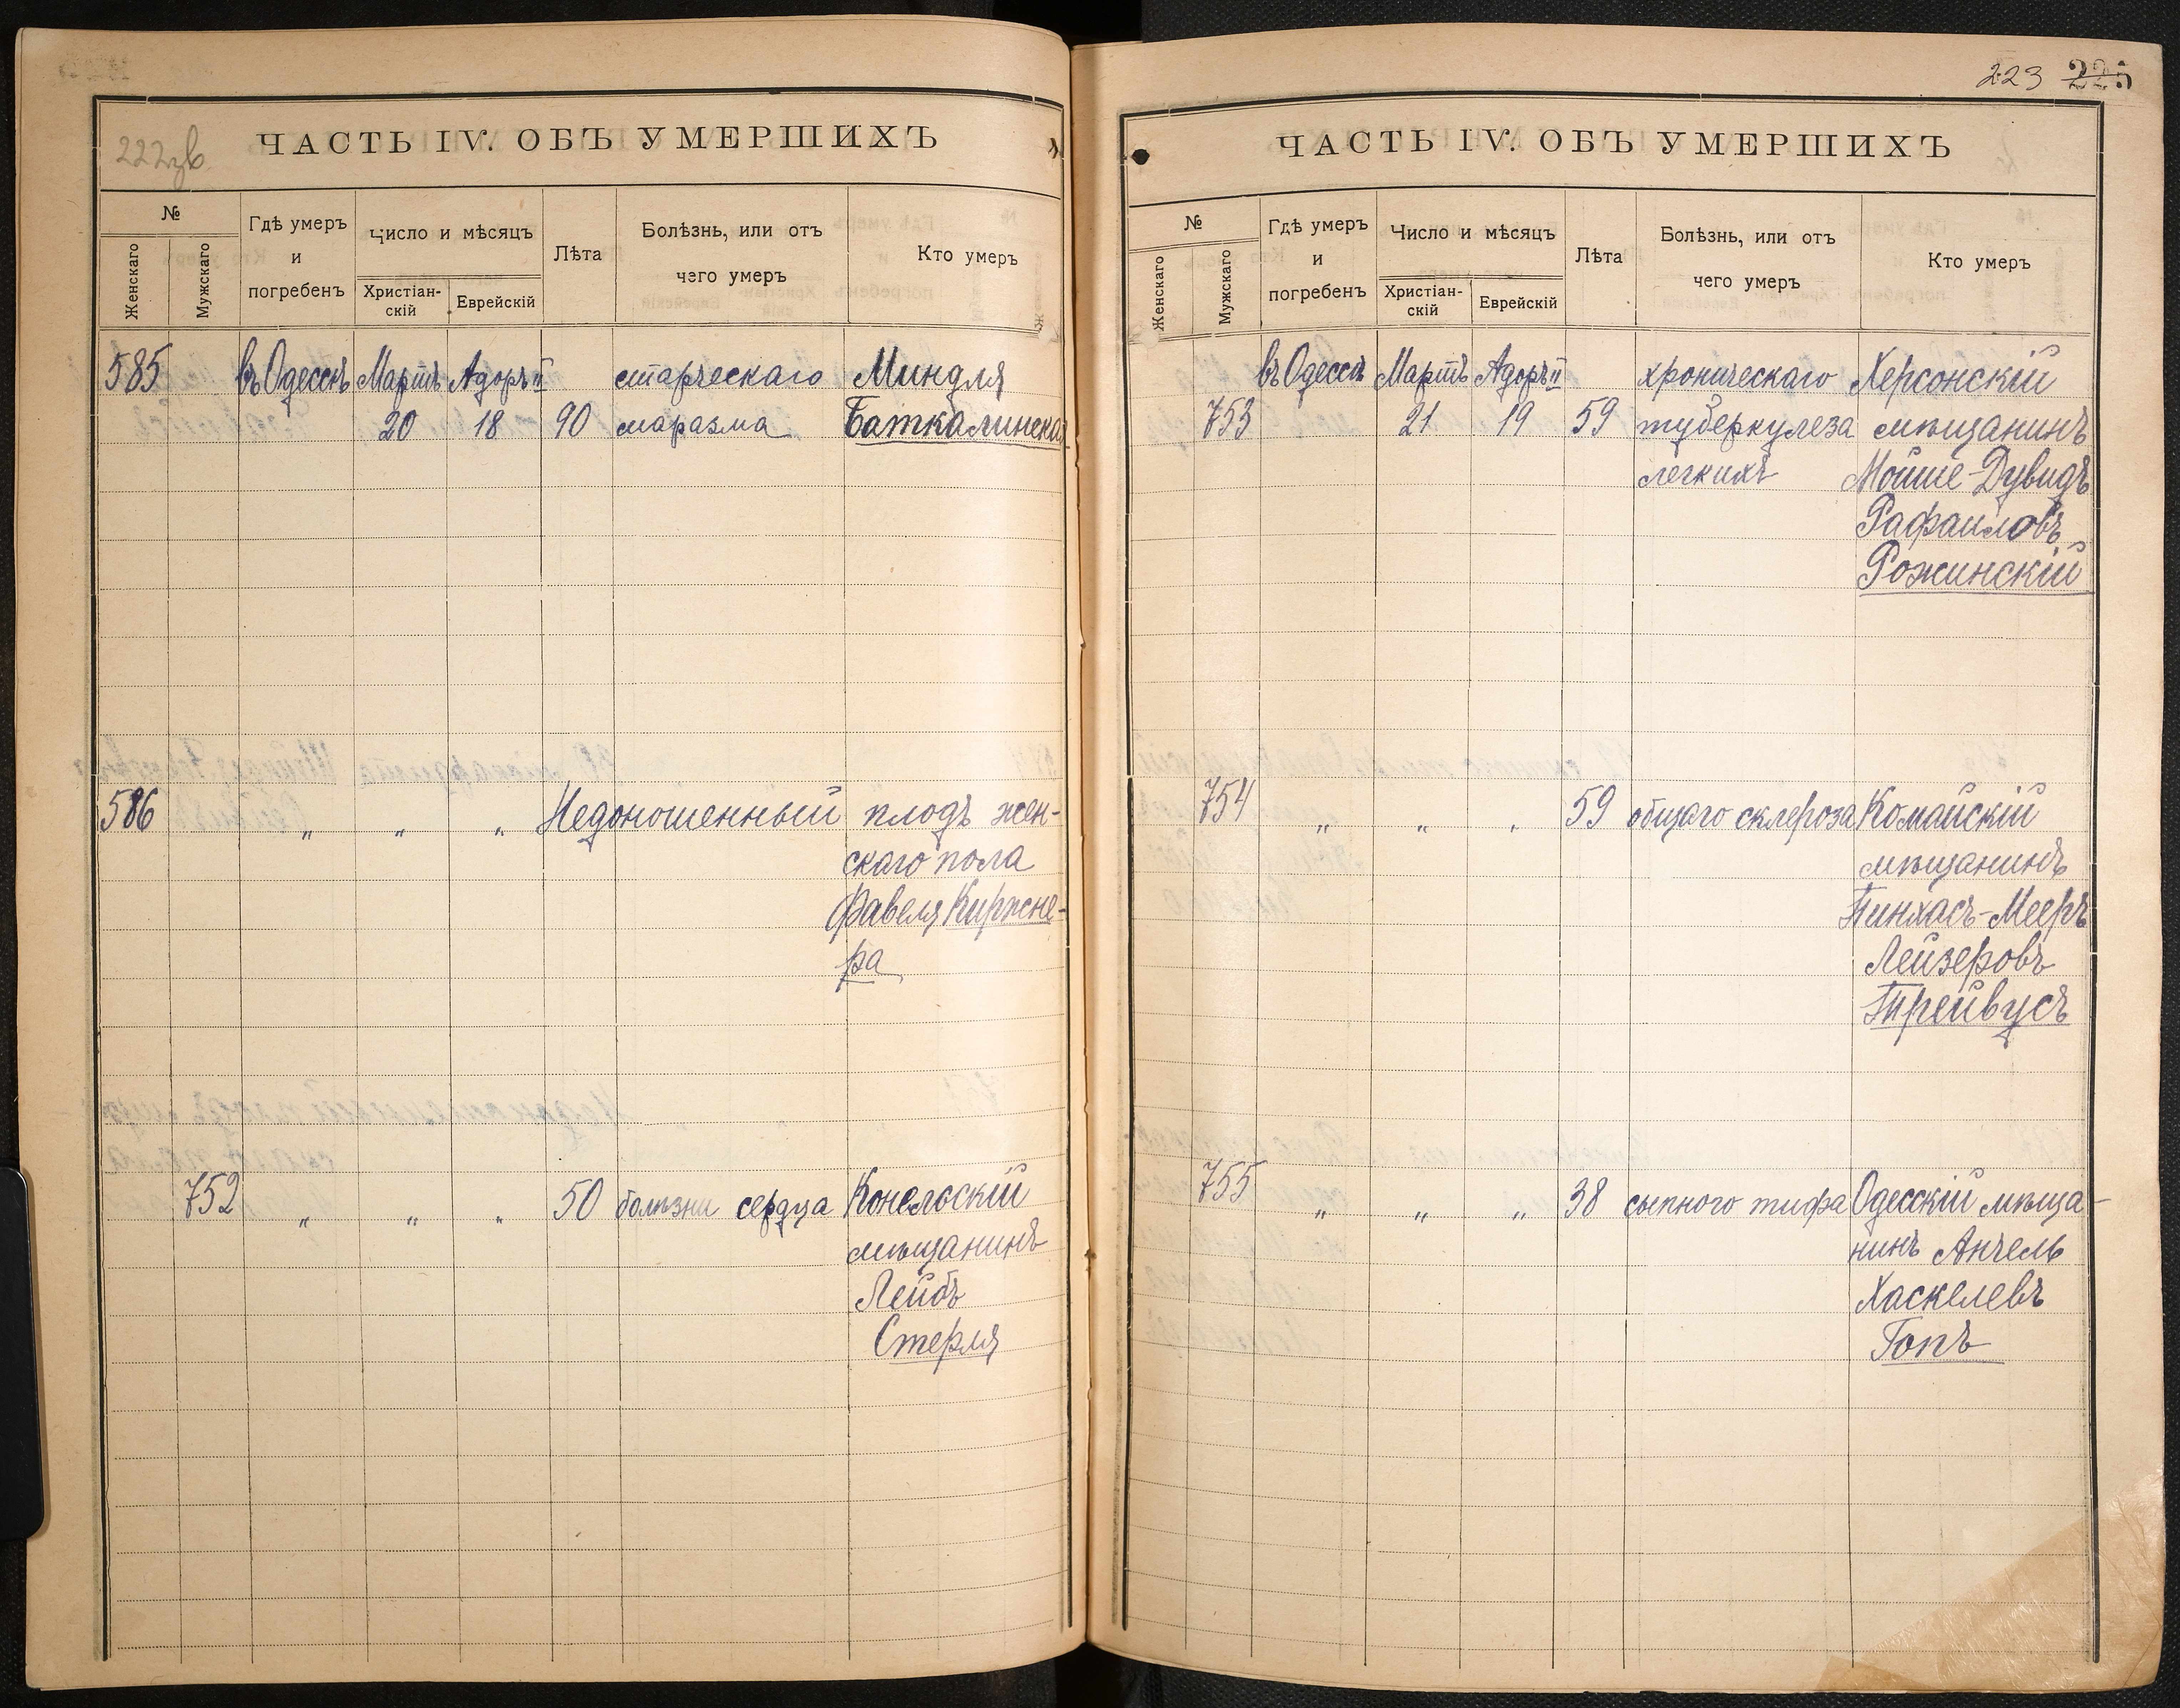 222зв.
ЧАСТЬ IV. ОБЪ УМЕРШИХЪ
№
Женскаго
Мужскаго
Гдѣ умеръ
и
погребенъ
Число и мѣсяцъ
Христіан-
скій
Еврейскій
Лѣта
Болѣзнь, или отъ
чего умеръ
Кто умеръ
585 въ Одессѣ Мартъ Адоръ II старческаго Миндля
20 18 90 маразма Баткалинская
586 " " " Недоношенный плодъ жен-
скаго пола
Фавеля Киржне-
ра
752 " " " 50 болѣзни сердца Конельскій
мѣщанинъ
Лейбъ
Стерля
223 225
ЧАСТЬ IV. ОБЪ УМЕРШИХЪ
№
Женскаго
Мужскаго
Гдѣ умеръ
и
погребенъ
Число и мѣсяцъ
Христіан-
скій
Еврейскій
Лѣта
Болѣзнь, или отъ
чего умеръ
Кто умеръ
въ Одессѣ Мартъ Адоръ II хроническаго Херсонскій
753 21 19 59 туберкулеза мѣщанинъ
легкихъ Мойше-Дувидъ
Рафаиловъ
Рожинскій
754 " " " 59 общаго склероза Комайскій
мѣщанинъ
Пинхасъ-Мееръ
Лейзеровъ
Трейвусъ
755 " " " 38 сыпного тифа Одесскій мѣща-
нинъ Анчель
Хаскелевъ
Гопъ